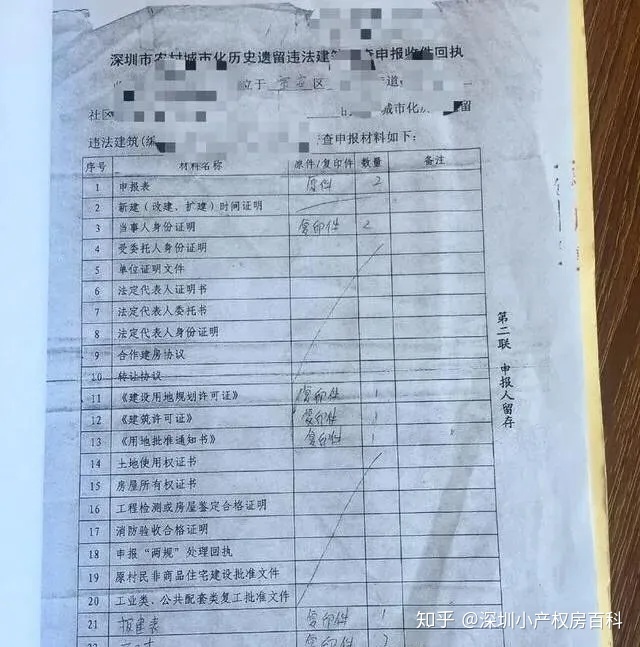 深圳市农村城市化历史遗留违法建筑 查申报收件回执
位于 宝安 区 道
社区 城市化 留
违法建筑(编 查申报材料如下:
序号 材料名称 原件/复印件 数量 备注
1 申报表 原件 2
2 新建(改建、扩建)时间证明
3 当事人身份证明 复印件 2
4 受委托人身份证明
5 单位证明文件
6 法定代表人证明书
7 法定代表人委托书
8 法定代表人身份证明
9 合作建房协议
10 转让协议
11 《建设用地规划许可证》 复印件 1
12 《建筑许可证》 复印件 1
13 《用地批准通知书》 复印件 1
14 土地使用权证书
15 房屋所有权证书
16 工程检测或房屋鉴定合格证明
17 消防验收合格证明
18 申报“两规”处理回执
19 原村民非商品住宅建设批准文件
20 工业类、公共配套类复工批准文件
21 报建表 复印件 1
22 复印件
第二联 申报人留存
知乎 @深圳小产权房百科